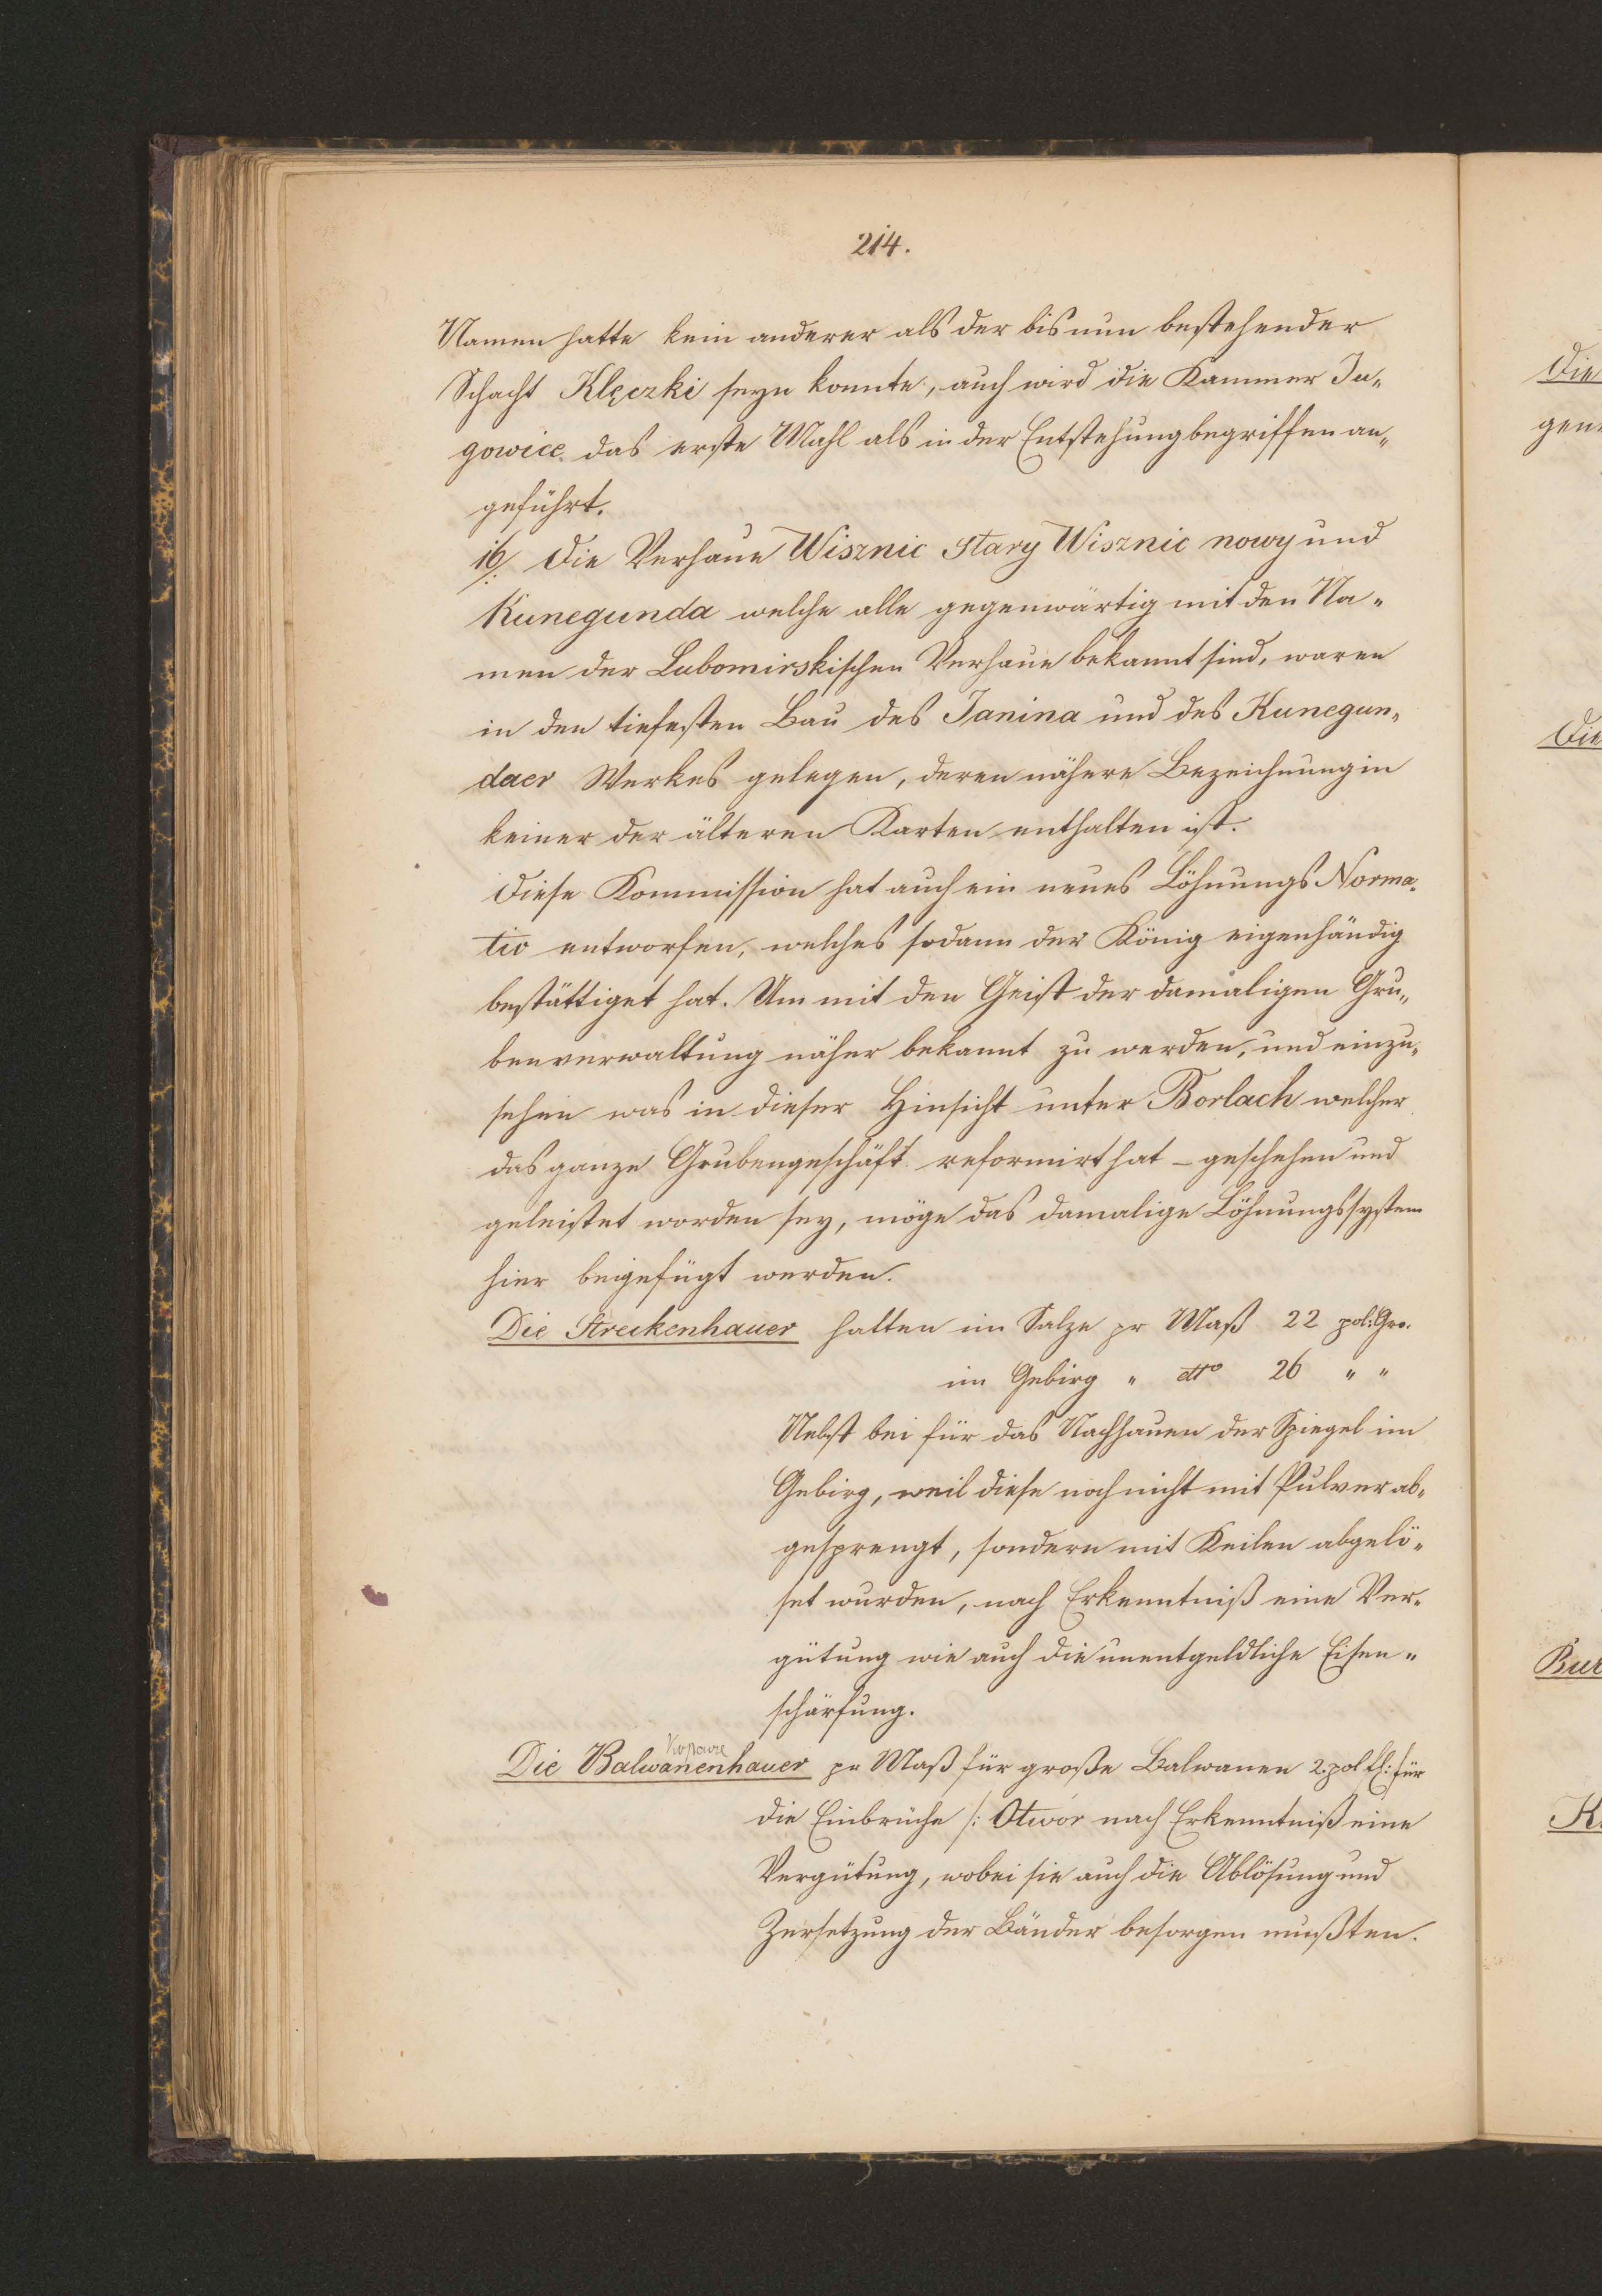 214.
Namen hatte kein anderer als der bis nun bestehender
Schacht Klęczki seyn konnte, auch wird die Kammer Ja„
gowice das erste Mahl als in der Entstehung begriffen an„
geführt.
16/. Die Verhaue Wisznic Stary Wisznic nowy und
Kunegunda welche alle gegenwärtig mit den Na„
men der Lubomirskischen Verhaue bekannt sind, waren
in den tiefesten Bau des Janina und des Kunegun„
daer Werkes gelegen, deren nähere Bezeichnung in
keiner der älteren Karten enthalten ist.
Diese Kommission hat auch ein neues Löhnungs Norma„
tiv entworfen, welches sodann der König eigenhändig
bestättiget hat. Um mit den Geist der damaligen Gru„
benverwaltung näher bekannt zu werden, und einzu„
sehen was in dieser Hinsicht unter Borlach welcher
das ganze Grubengeschäft reformirt hat – geschehen und
geleistet worden sey, möge das damalige Löhnungssystem
hier beigefügt werden.
Die Streckenhauer halten im Salze pr Maß 22 pol: Gro.
im Gebirg „ dtto 26 „ „
Nebst bei für das Nachhauen der Spiegel im
Gebirg, weil diese noch nicht mit Pulver ab„
gesprengt, sondern mit Keilen abgelö„
set wurden, nach Erkenntniß eine Ver„
gütung wie auch die unentgeldliche Eisen„
schärfung.
Die Balwanenhauer pr Maß für große Balwanen 2. pol fl: für
die Einbrüche /: Otwór nach Erkenntniß eine
Vergütung, wobei sie auch die Ablösung und
Zersetzung der Bänder besorgen mußten.
Die
gen
Die
Bur
K